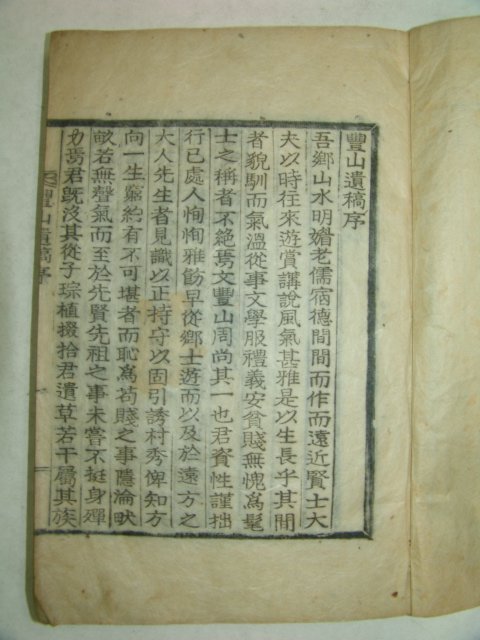 豐山遺稿序
吾鄉山水明媚老儒宿德間間而作而遠近賢士大
夫以時往來遊賞講說風氣甚雅是以生長乎其間
者貌馴而氣溫從事文學服禮義安貧賤無愧爲髦
士之稱者不絶焉文豐山周尚其一也君資性謹拙
行已處人恂恂雅飭早從鄉士遊而以及於遠方之
大人先生者見識以正持守以固引誘村秀俾知方
向一生窮約有不可堪者而恥爲苟賤之事隱淪畎
畝若無聲氣而至於先賢先祖之事未嘗不挺身殫
力焉君旣沒其從子琮植掇拾君遺草若干屬其族
豐山遺稿序